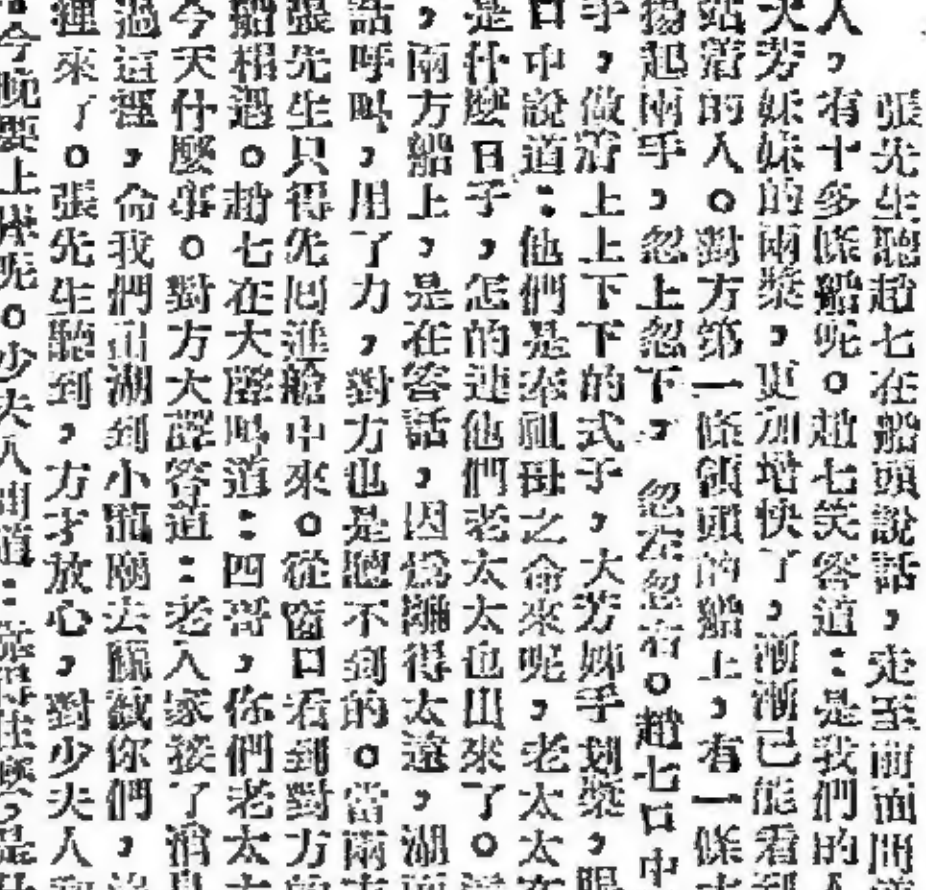 張先生聽趙七在船頭說話，走至前面問
人，有十多條船呢。趙七笑答道：是我們的
大芳妹妹的兩槳，更加增快了，漸漸已能看到
站着的人。對方第一條領頭的船上，有一條
揚起兩手，忽上忽下，忽左忽右。趙七口中
手，做着上上下下的式子，大芳姊手划槳，眼
口中說道：他們是奉祖母之命來呢，老太太
是什麼日子，怎的連他們老太太也出來了。
，兩方船上，是在答話，因為離得太遠，湖
話呼叫，用了力，對方也是聽不到的。當兩
張先生只得先回進艙中來。從窗口看到對方
船相遇。趙七在大聲叫道：四哥，你們老太
今天什麼事。對方大聲答道：老人家接了
過這裡，命我們到小龍廟去，你們，
裡來了。張先生聽到，方才放心，對少夫人
今晚要上岸呢。少夫人問道：是